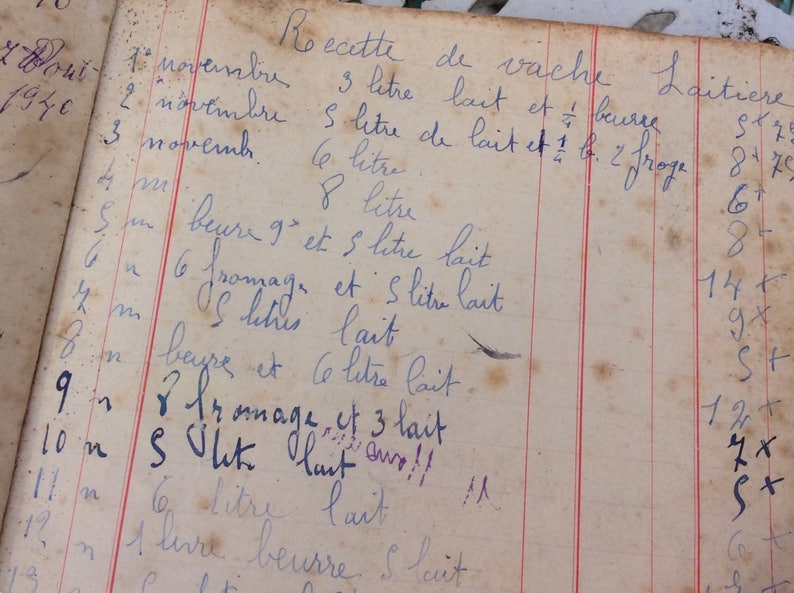 Août
1940
Recette de vache Laitiere
1° novembres 3 litre lait et 1/4 beurre 5+75
2 novembre 5 litre de lait et 1/4 b. 2 froge 8+75
3 novembr. 6 litre 6+
4 m 8 litre 8+
5 m beure 9x et 5 litre lait 14+
6 n 6 fromage et 5 litre lait 9x
7 m 5 litres lait 5+
8 n beure et 6 litre lait 12+
9 n 8 fromage et 3 lait 7x
10 n 5 lit lait 5x
11 n 6 litre lait 6x
12 n 1 livre beurre 5 lait
13